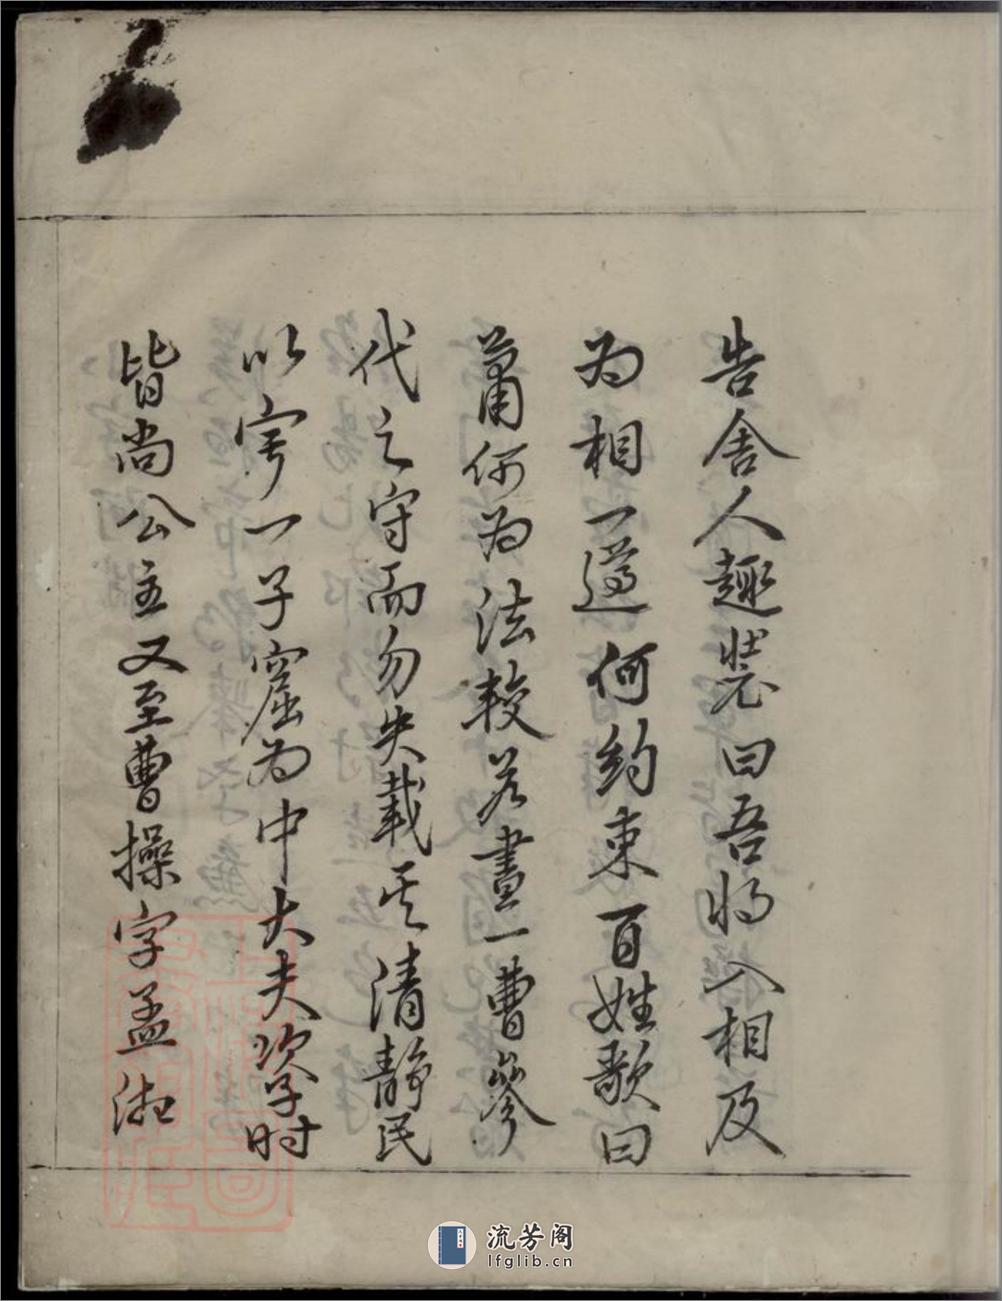 告舍人趣裝曰吾将入相及
为相一遵何約束百姓歌曰
蕭何为法較若畫一曹參
代之守而勿失載其清靜民
以寧一子窟为中大夫次子时
皆尚公主又至曹操字孟
流芳阁
lfglib.cn